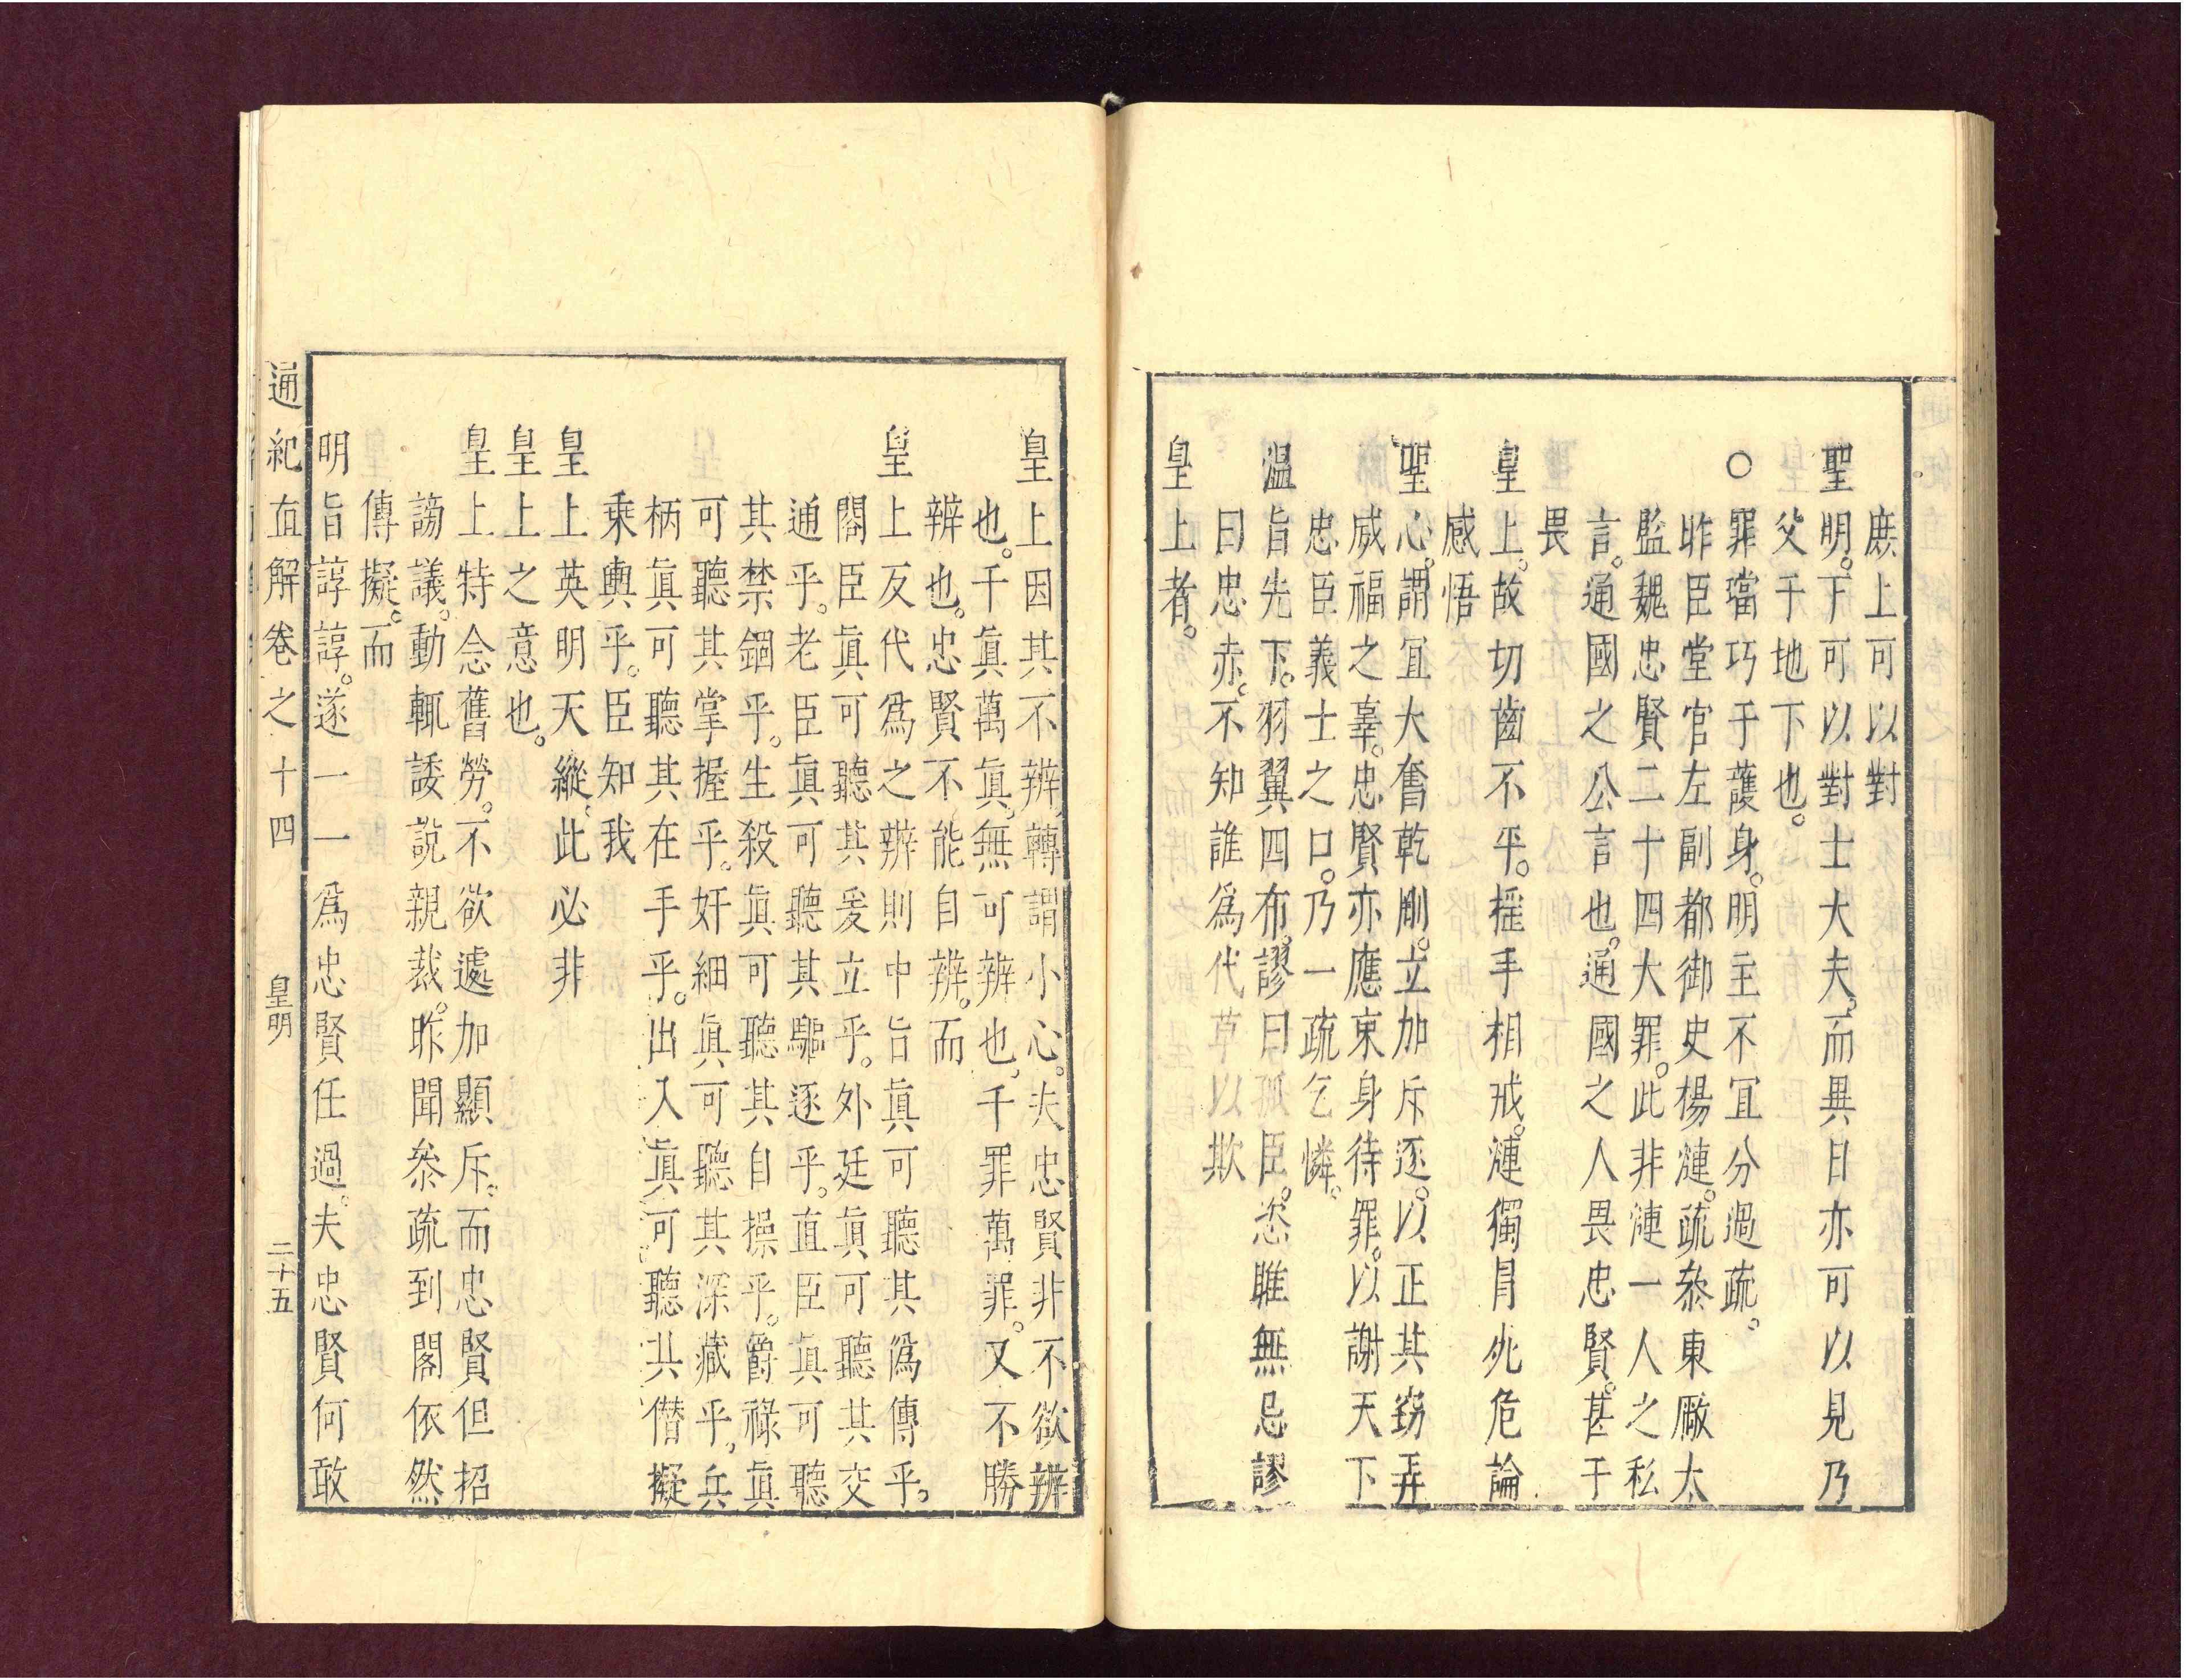 庶上可以對
聖明。下可以對士大夫。而異日亦可以見乃
父于地下也。
○罪璫巧于護身。明主不宜分過疏。
昨臣堂官左副都御史楊漣。疏叅東厰太
監魏忠賢二十四大罪。此非漣一人之私
言。通國之公言也。通國之人畏忠賢。甚于
畏
皇上。故切齒不平。搖手相戒。漣獨冐死危論
感悟
聖心。謂宜大奮乾剛。立加斥逐。以正其竊弄
威福之辜。忠賢亦應束身待罪。以謝天下
忠臣義士之口。乃一疏乞憐。
溫旨先下。羽翼四布。謬曰孤臣。恣睢無忌謬
曰忠赤。不知誰爲代草以欺
皇上者。
皇上因其不辨。轉謂小心。夫忠賢非不欲辨
也。千眞萬眞。無可辨也。千罪萬罪。又不勝
辨也。忠賢不能自辨。而
皇上反代爲之辨則中旨眞可聽其僞傳乎。
閣臣眞可聽其爰立乎。外廷眞可聽其交
通乎。老臣眞可聽其驅逐乎。直臣眞可聽
其禁錮乎。生殺眞可聽其自操乎。爵祿眞
可聽其掌握乎。奸細眞可聽其深藏乎。兵
柄眞可聽其在手乎。出入眞可聽其僭擬
乗輿乎。臣知我
皇上英明天縱。此必非
皇上之意也。
皇上特念舊勞。不欲遽加顯斥。而忠賢但招
謗議。動輒諉說親裁。昨聞叅疏到閣依然
傳擬。而
明旨諄諄。遂一一爲忠賢任過。夫忠賢何敢
通紀直解卷之十四 皇明 二十五